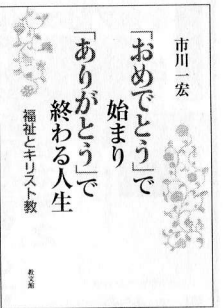 市川一宏
「おめでとう」で
始まり
「ありがとう」で
終わる人生
福祉とキリスト教
教文館